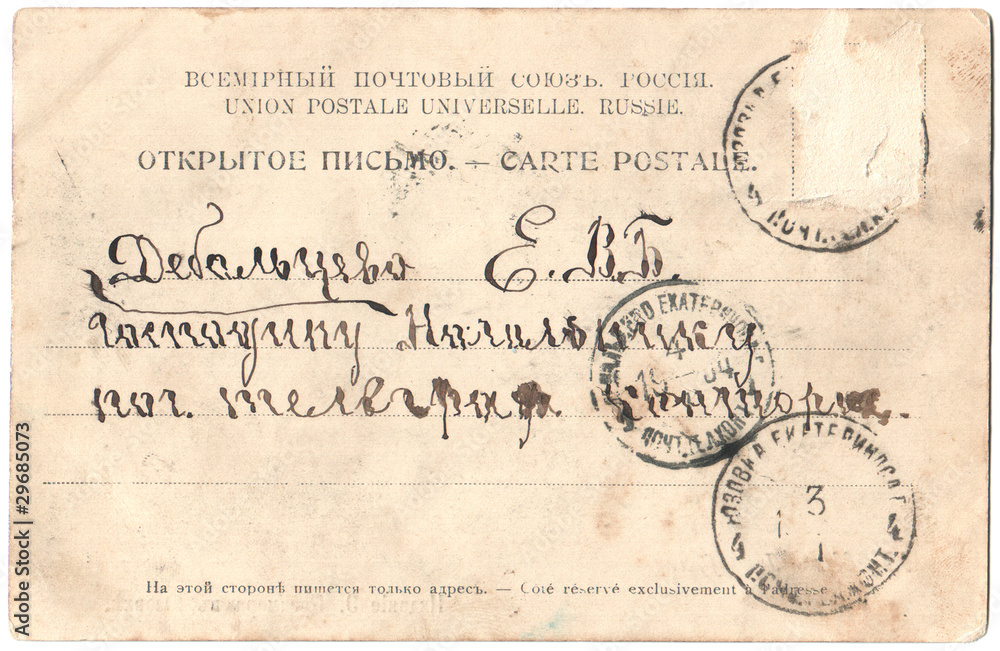 ВСЕМІРНЫЙ ПОЧТОВЫЙ СОЮЗЪ. РОССІЯ.
UNION POSTALE UNIVERSELLE. RUSSIE.
ОТКРЫТОЕ ПИСЬМО. — CARTE POSTALE.
Дебальцево Е. В. Б.
Господину Начальнику
поч. телеграф. Конторы.
ЕКАТЕРИНОС
4
19 — 04
ПОЧТ. ТЕЛ. КОН
ЮЗОВКА ЕКАТЕРИНОС. Г.
3
1
1
4 4
ПОЧТ. ТЕЛ. КОНТ.
На этой сторонѣ пишется только адресъ. — Coté réservé exclusivement à l'adresse.
Adobe Stock | #29685073